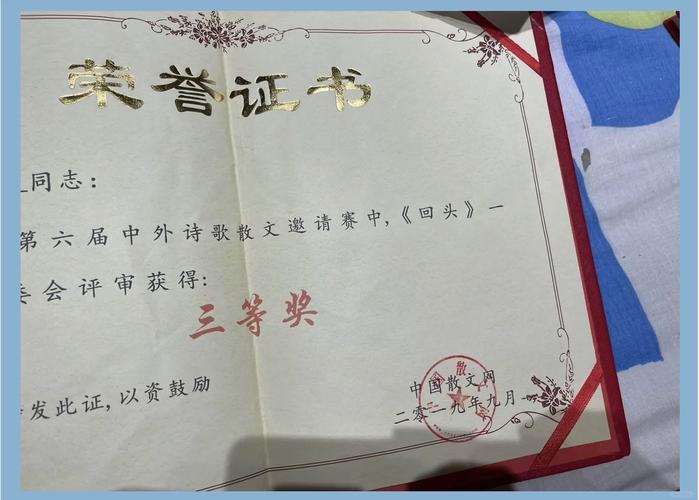 荣誉证书
同志：
第六届中外诗歌散文邀请赛中,《回头》一
委会评审获得:
三等奖
发此证,以资鼓励
中国散文网
二零一九年九月一